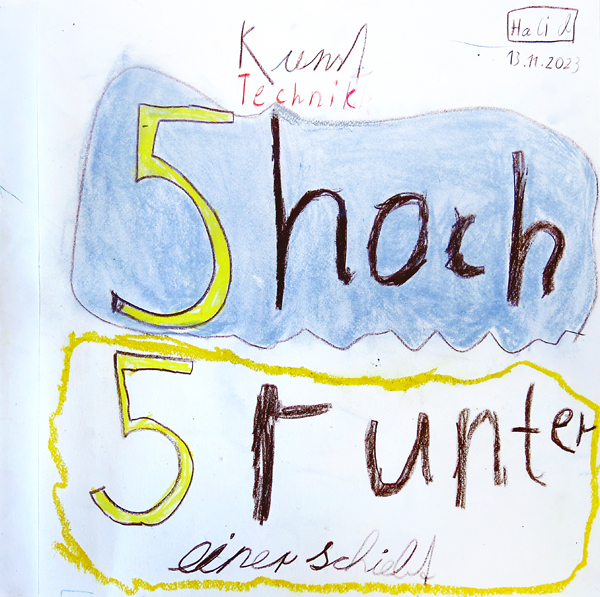 Halid
13.11.2023
Kunst
Technik
5 hoch
5 runter
einer schiebt